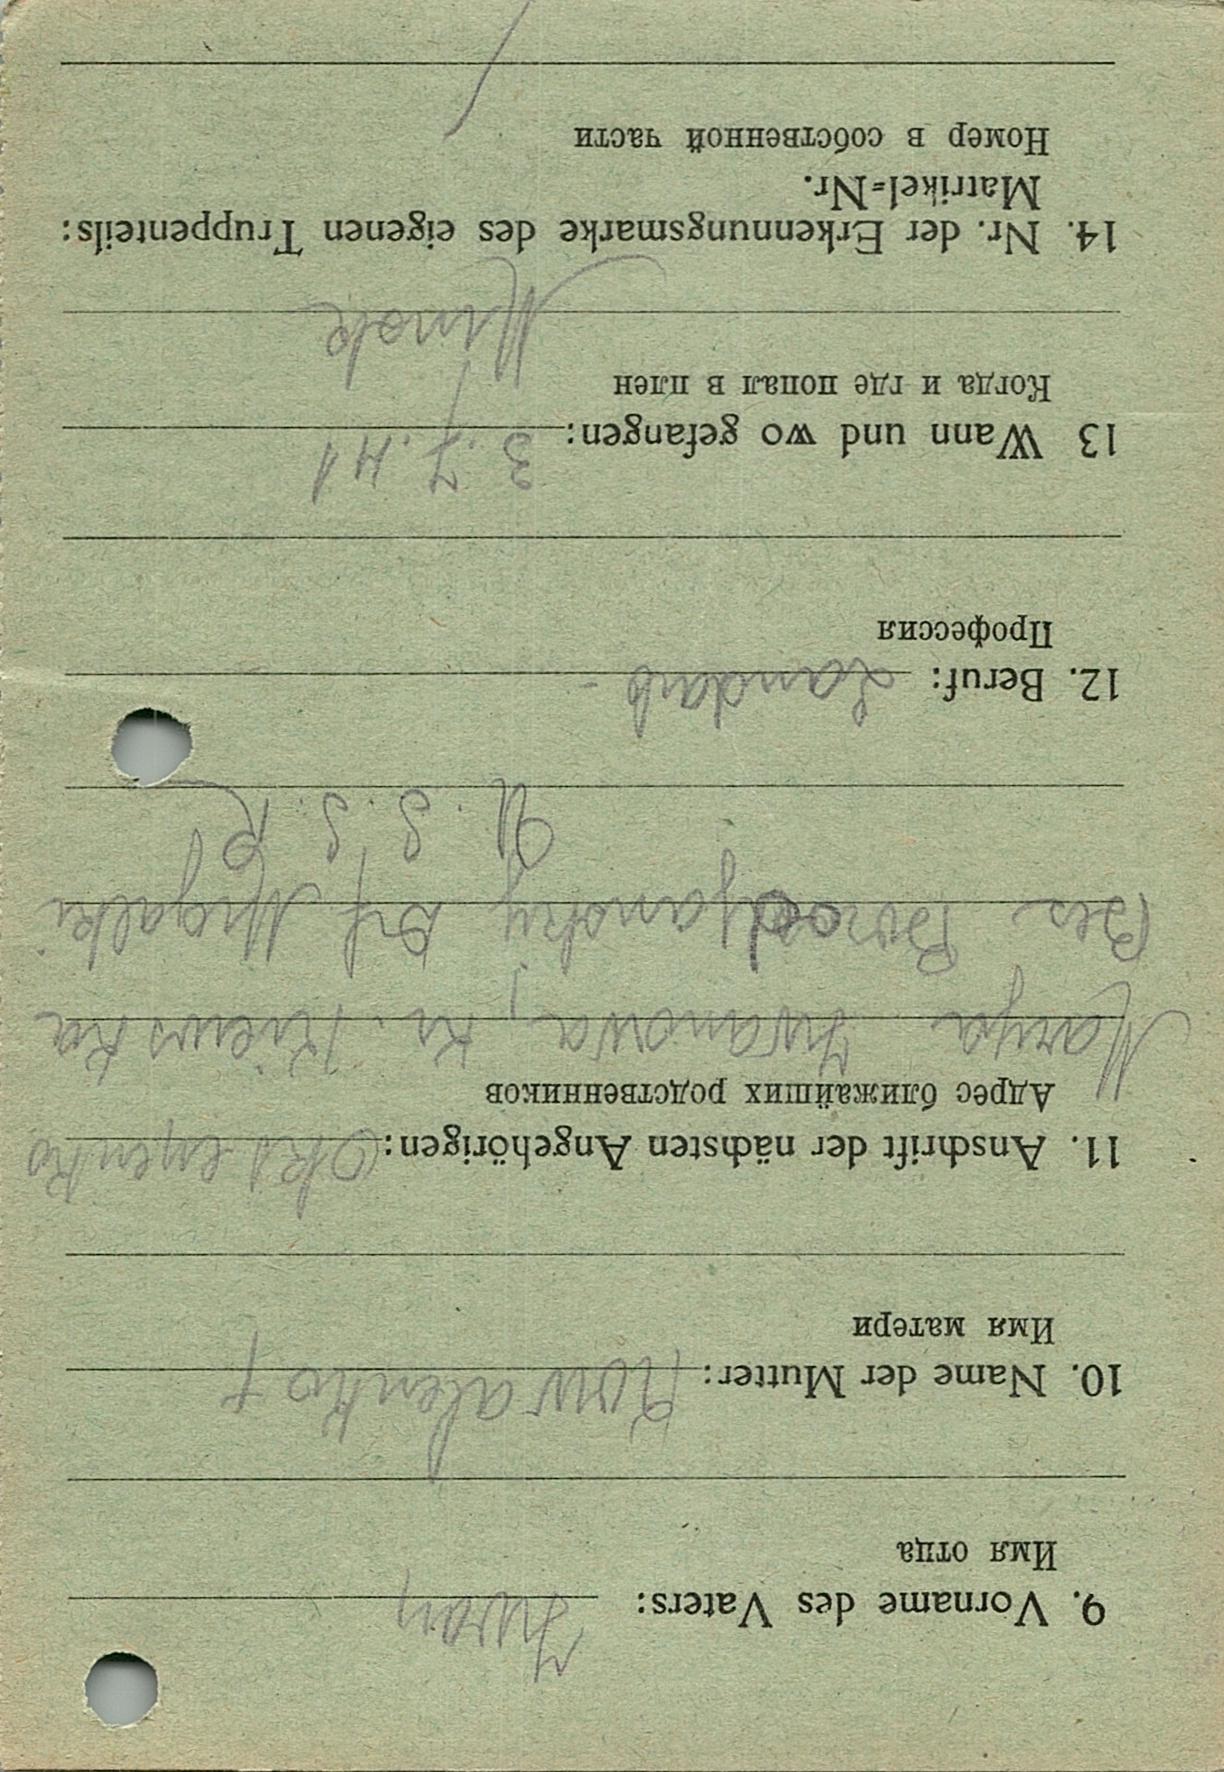 9. Vorname des Vaters: Iwan
Имя отца
10. Name der Mutter: Kowalenko f
Имя матери
11. Anschrift der nächsten Angehörigen:
Адрес ближайших родственников
Marya Iwanowa, Kr. Kiewska
Bes Borodjansky Df Migalki
U. S. S. R
12. Beruf: Landarb -
Профессия
13 Wann und wo gefangen: 3. 7. 41
Когда и где попал в плен
Minsk
14. Nr. der Erkennungsmarke des eigenen Truppenteils:
Matrikel=Nr.
Номер в собственной части